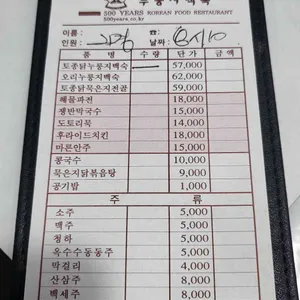 500 YEARS KOREAN FOOD RESTAURANT
500years.co.kr
이름 :
인원 : 날짜 :
품 명 수량 단가 금액
토종닭누룽지백숙 57,000
오리누룽지백숙 62,000
토종닭묵은지전골 59,000
해물파전 18,000
쟁반막국수 15,000
도토리묵 14,000
후라이드치킨 18,000
마른안주 15,000
콩국수 10,000
묵은지닭볶음탕 9,000
공기밥 1,000
주 류
소주 5,000
맥주 5,000
청하 5,000
옥수수동동주 5,000
막걸리 4,000
산삼주 8,000
백세주 8,000